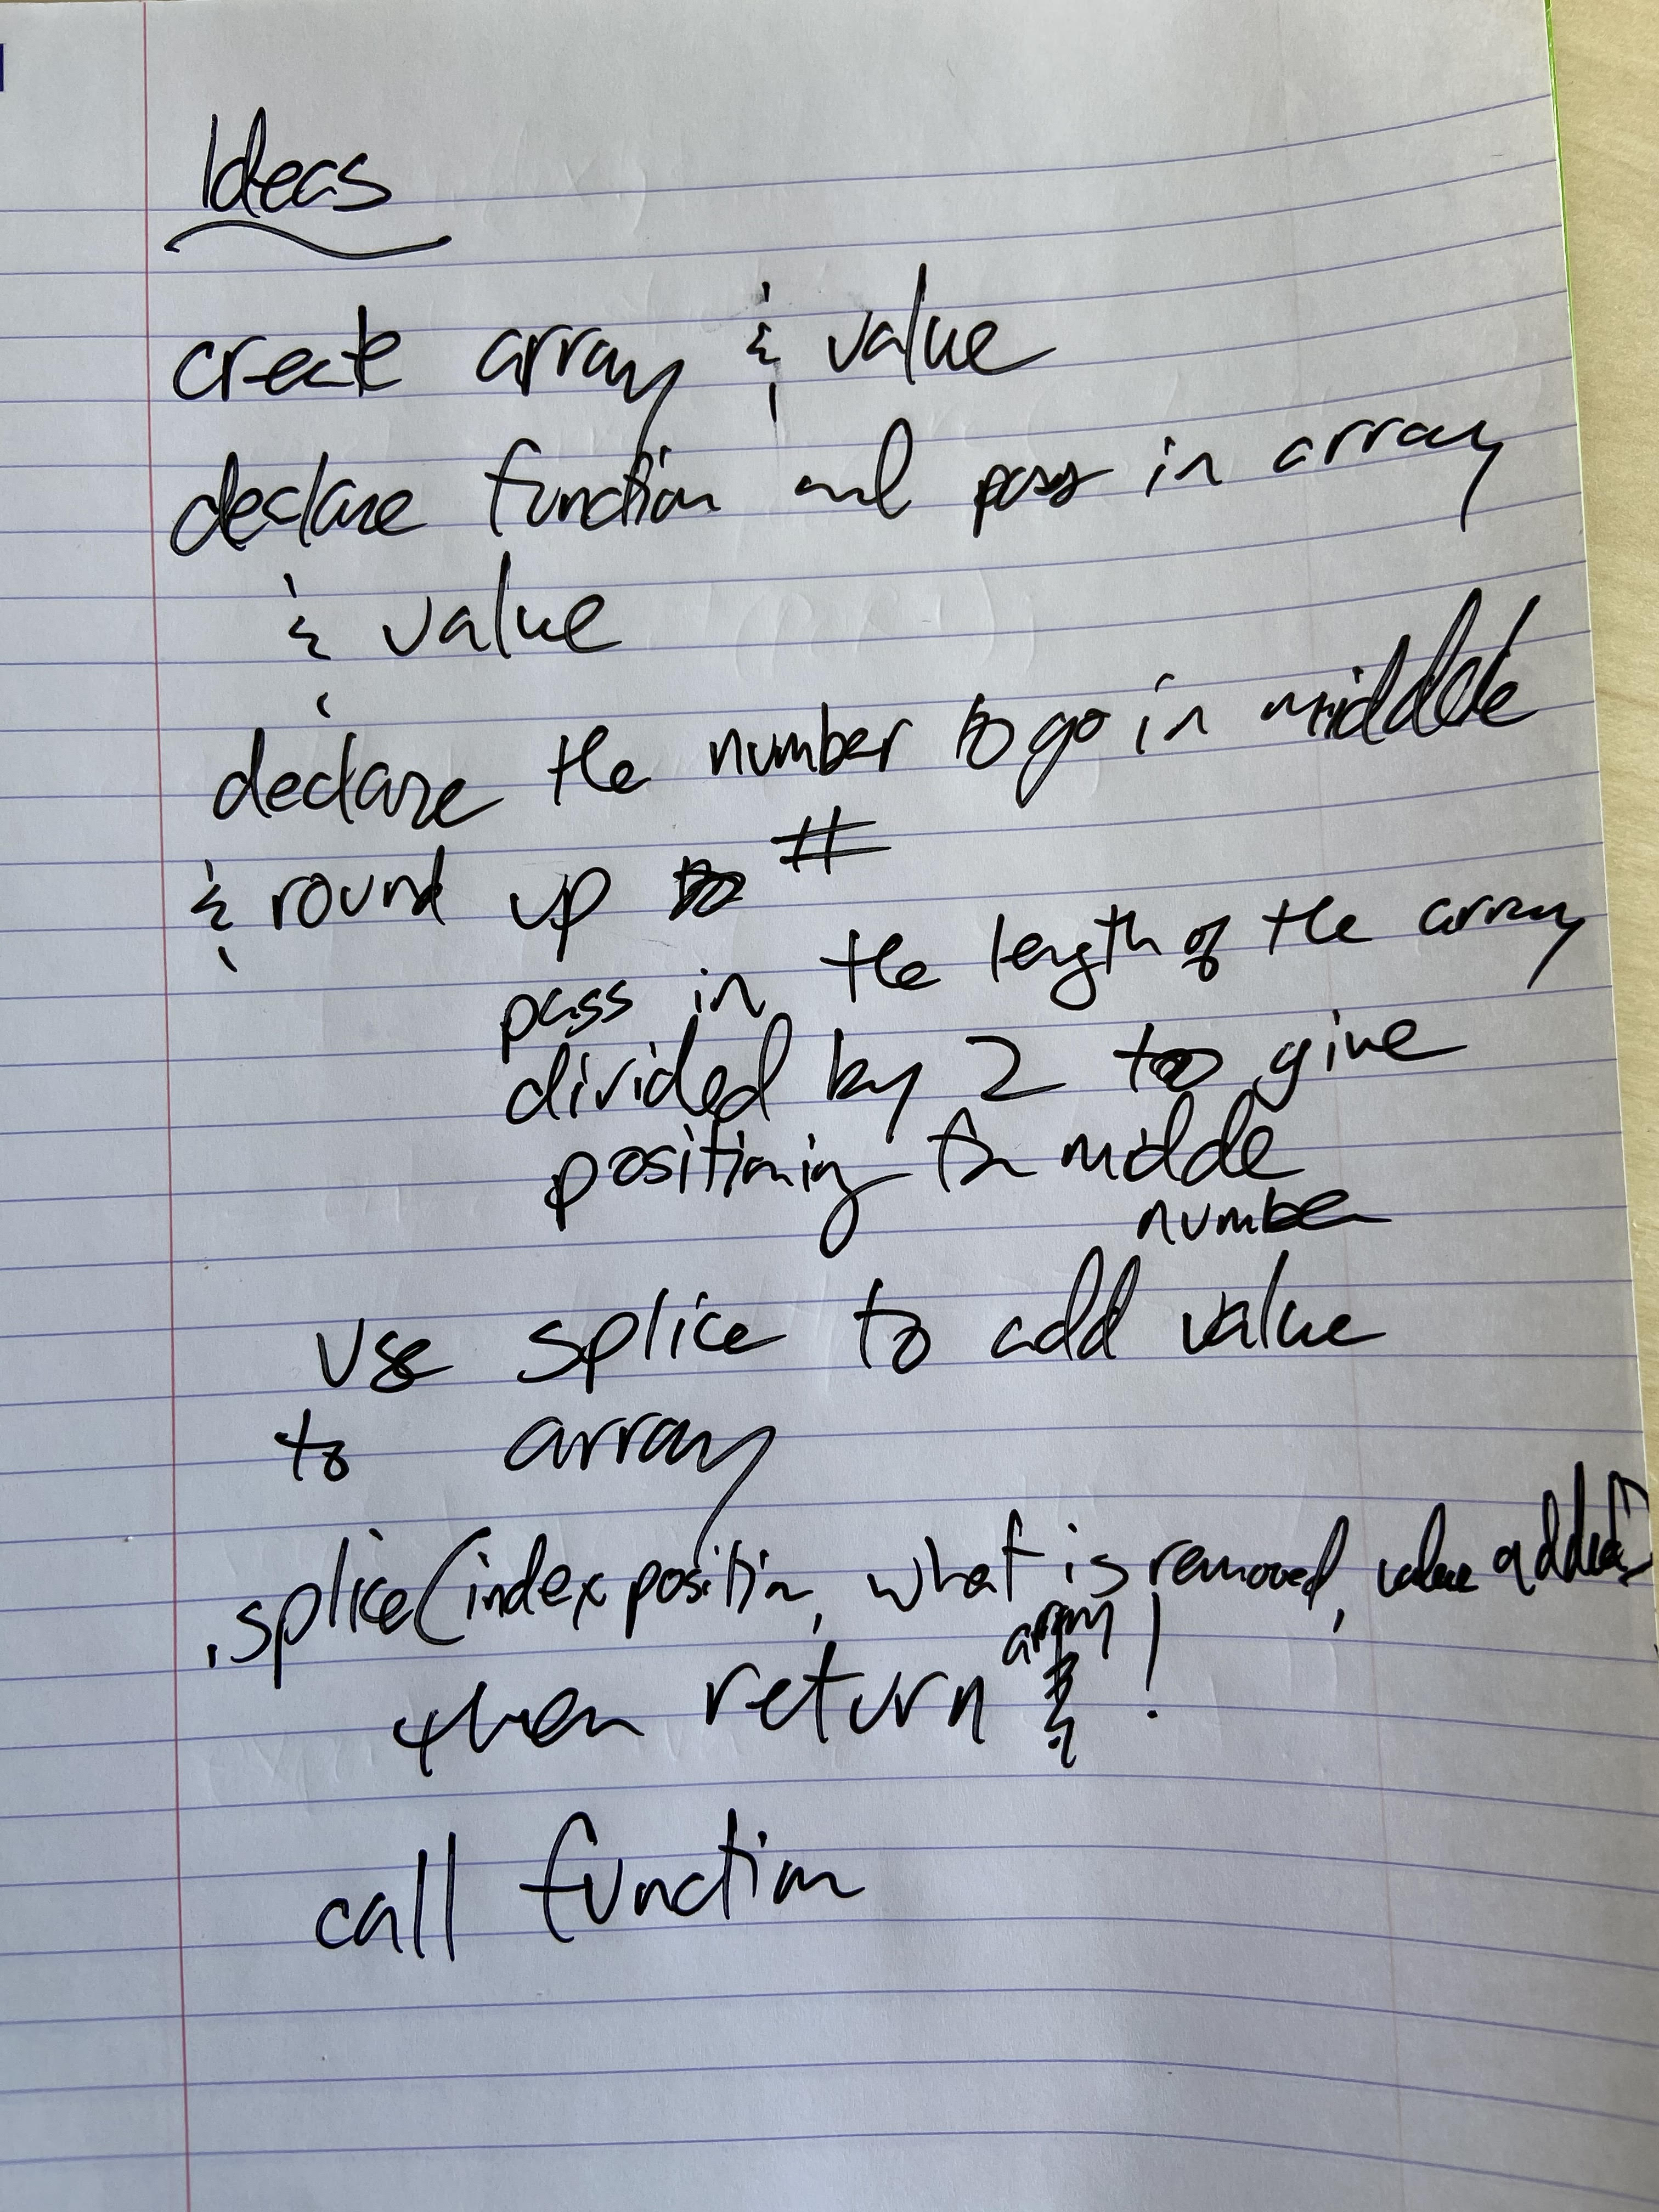 Ideas
create array & value
declare function and pass in array
& value
declare the number to go in middle
& round up to #
pass in the length of the array
divided by 2 to give
positioning for middle
number
use splice to add value
to array
.splice(index position, what is removed, value added)
then return array !
call function